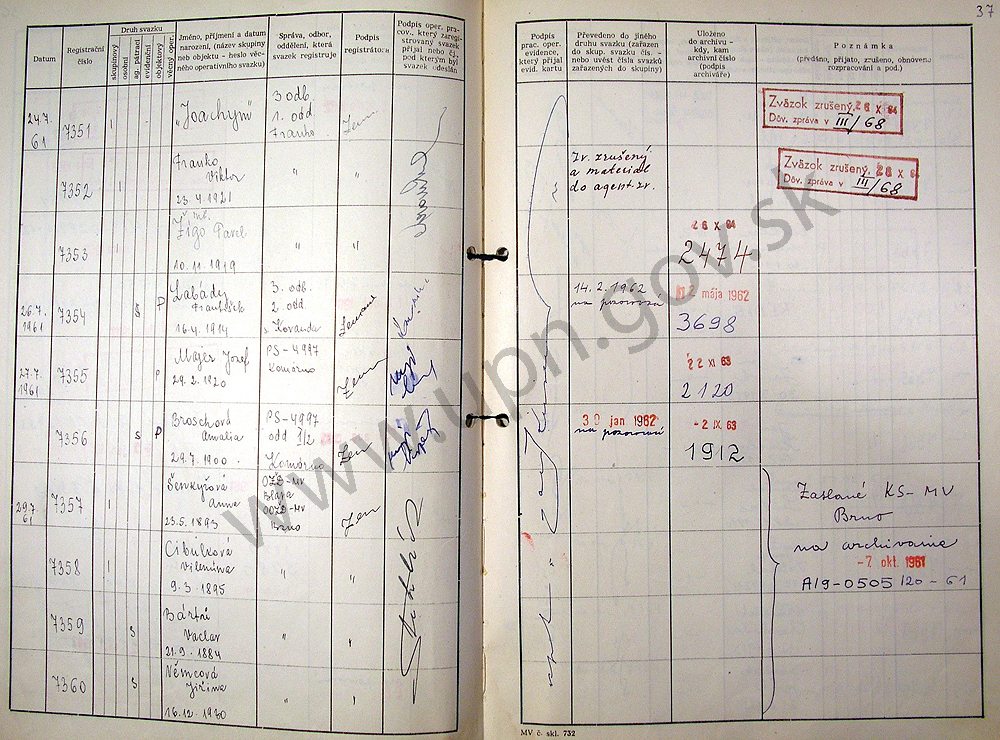 37
Datum
Registrační číslo
Druh svazku
skupinový
osobní
ag. pátrací
evidenční
objektový
věcný oper.
Jméno, příjmení a datum
narození, (název skupiny
nebo objektu - heslo věc-
ného operativního svazku)
Správa, odbor,
oddělení, která
svazek registruje
Podpis
registrátora
Podpis oper. pra-
cov., který zaregi-
strovaný svazek
přijal nebo čj.
pod kterým byl
svazek odeslán
Podpis
prac. oper.
evidence,
který přijal
evid. kartu
Převedeno do jiného
druhu svazku (zařazen
do skup. svazku čís. -
nebo uvést čísla svazků
zařazených do skupiny)
Uloženo
do archivu -
kdy, kam
archivní číslo
(podpis
archiváře)
Poznámka
(předáno, přijato, zrušeno, obnoveno
rozpracování a pod.)
24.7. 61
7351
"Joachym"
3 odb.
1. odd.
Franko
Zväzok zrušený 26 X 64
Dôv. zpráva v III/68
7352
Franko
Viktor
23.4.1921
"
"
Zv. zrušený
a materiál
do agent. zv.
Zväzok zrušený 26 X 64
Dôv. zpráva v III/68
7353
Žigo Pavel
10.11.1919
"
"
26 X 64
2474
26.7. 1961
7354
s
P
Labády
František
16.4.1914
3. odb.
2. odd.
s. Kovanda
14.2.1962
2 mája 1962
3698
27.7. 1961
7355
P
Majer Jozef
29.2.1920
PS-4997
Komárno
22 XI 63
2120
7356
s
P
Broschová
Amalia
29.7.1900.
PS-4997
odd 1/2
Komárno
30 jan 1962
-2 IX 63
1912
29.7. 61
7357
Šenkyřová
Anna
23.5.1893
OZŠ-MV
Blava
OOZŠ-MV
Brno
Zaslané KS-MV
Brno
na archivovanie
-7. okt. 1961
A19-0505/20-61
7358
Cibulková
Vilemína
9.3.1895
"
"
7359
s
Bártní
Vaclav
21.9.1884
"
"
7360
s
Němcová
Jiřina
16.12.1930
"
"
MV č. skl. 732
www.upn.gov.sk